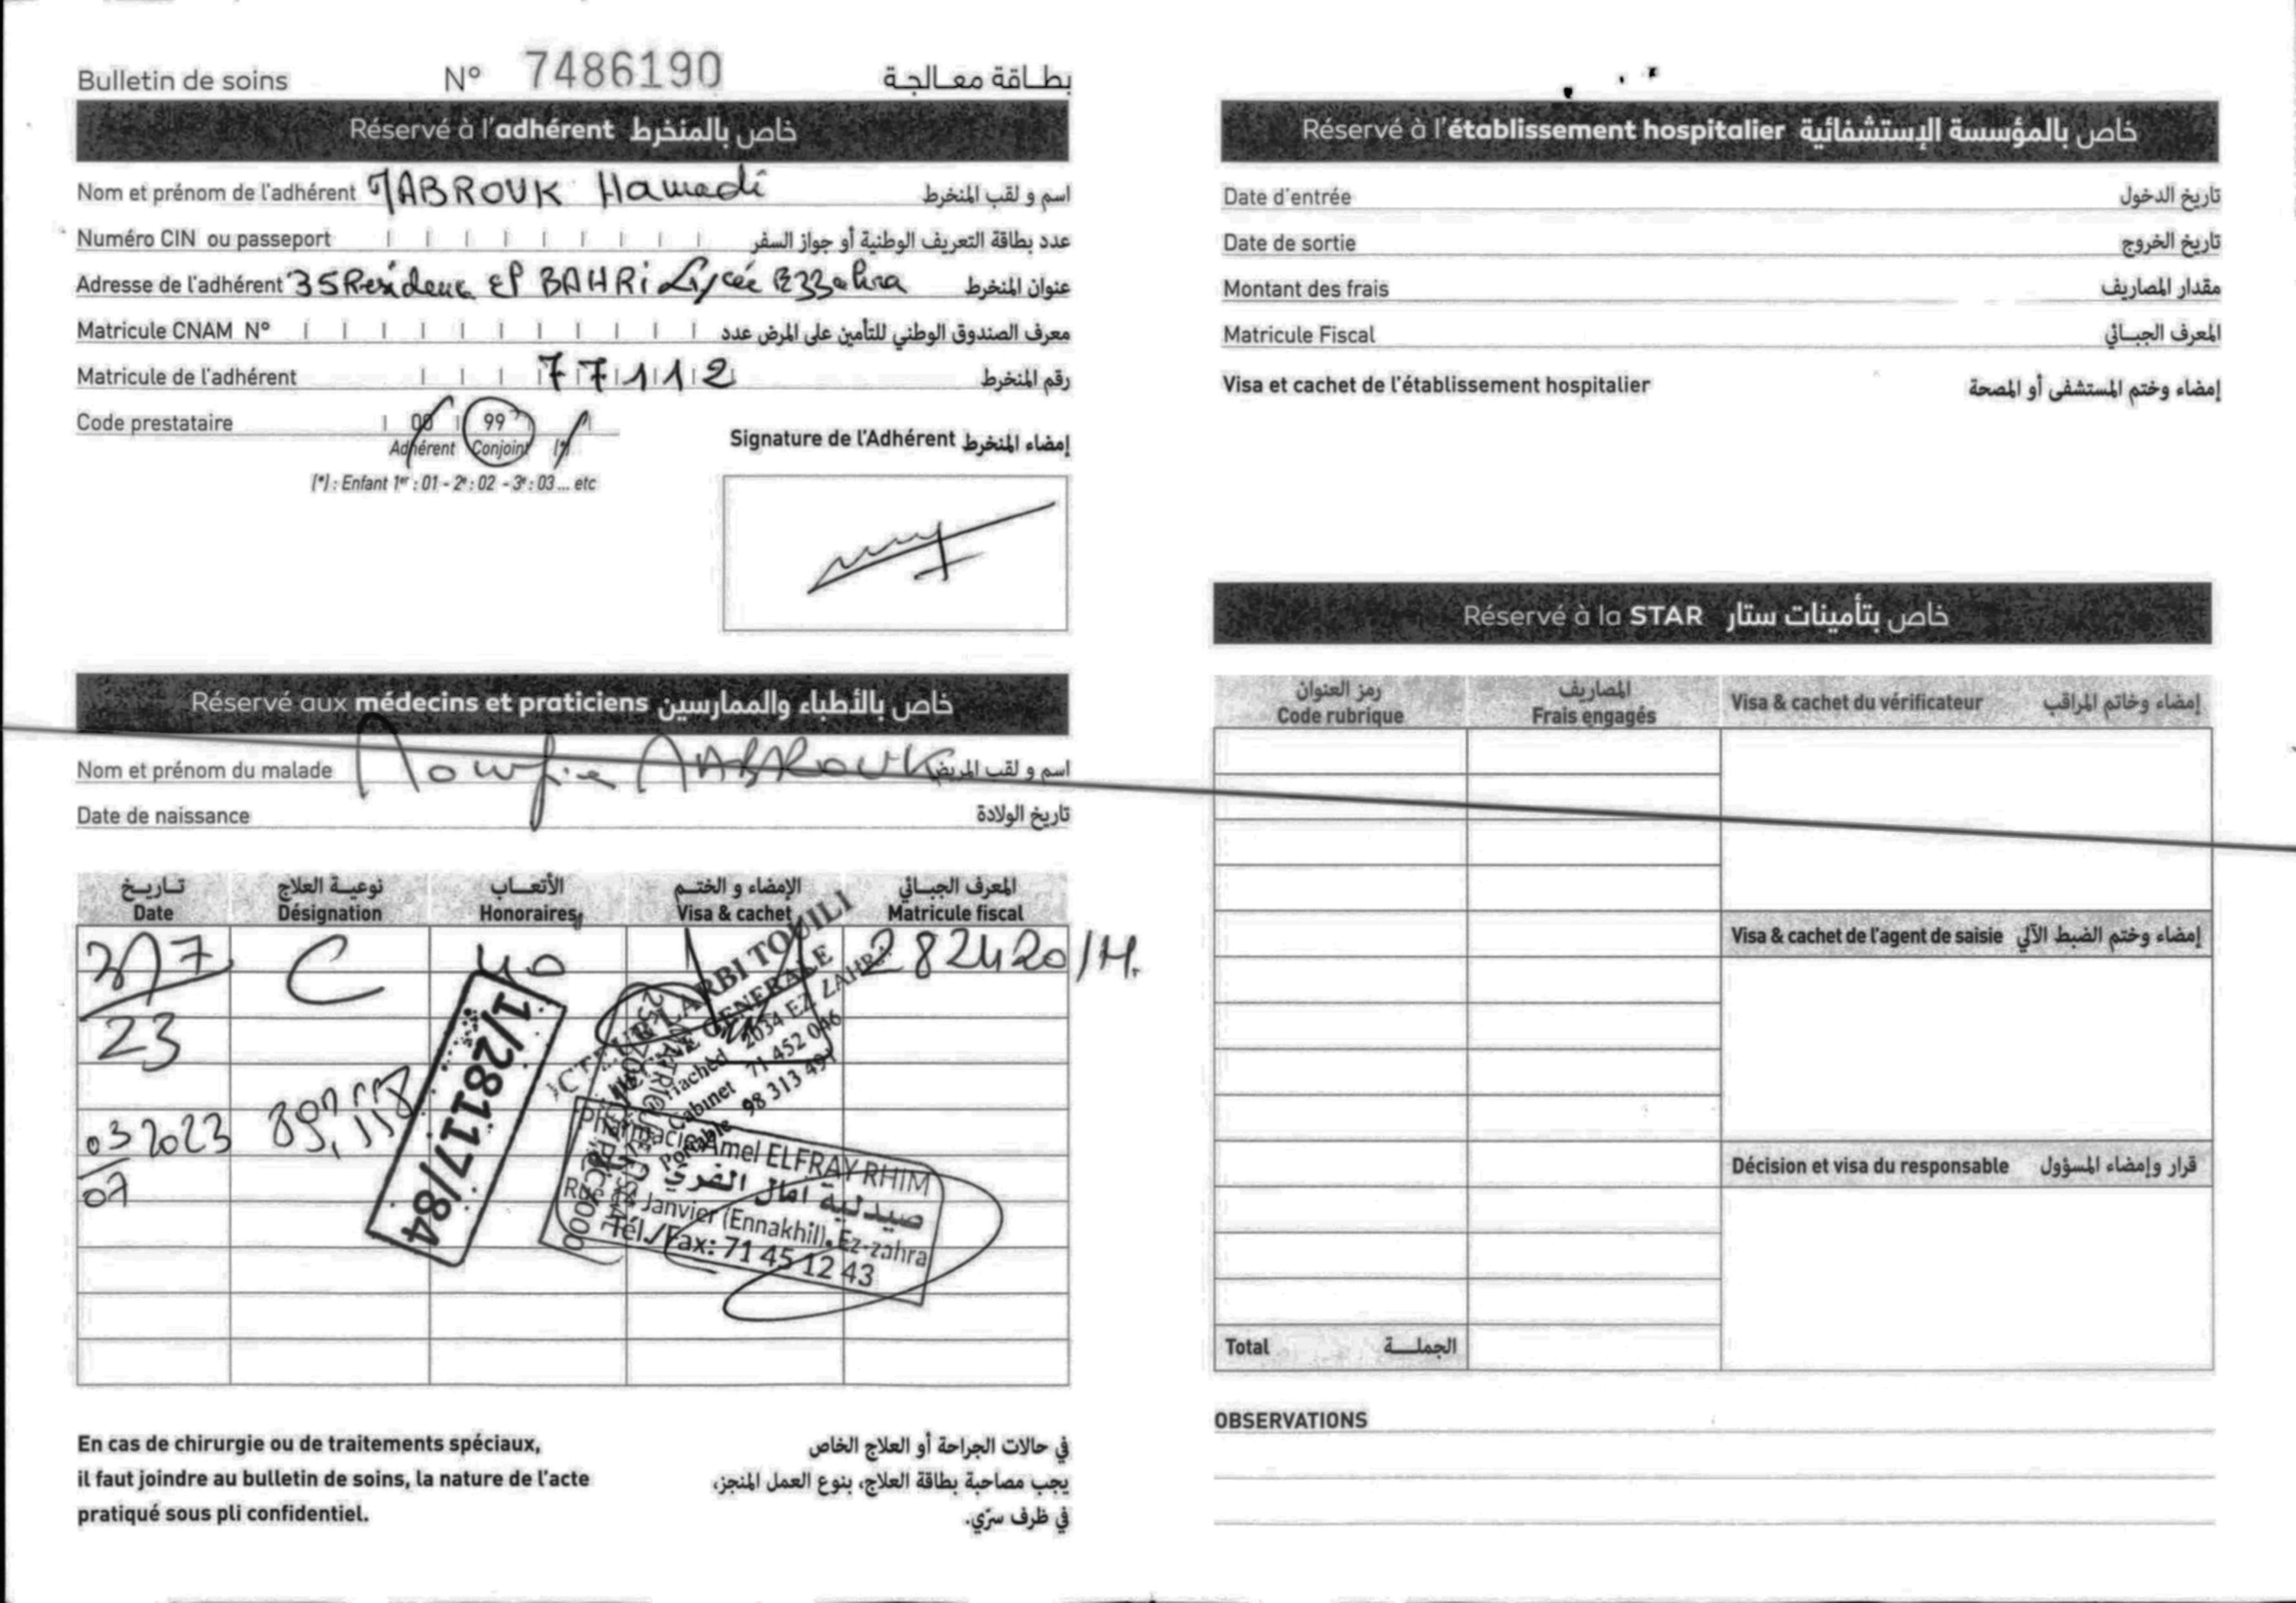 Bulletin de soins N° 7486190 بطاقة معالجة
Réservé à l'adhérent خاص بالمنخرط
Nom et prénom de l'adhérent MABROUK Hamadi اسم و لقب المنخرط
Numéro CIN ou passeport عدد بطاقة التعريف الوطنية أو جواز السفر
Adresse de l'adhérent 35 Residence El BAHRi Lycée Ezzahra عنوان المنخرط
Matricule CNAM N° معرف الصندوق الوطني للتأمين على المرض عدد
Matricule de l'adhérent 77112 رقم المنخرط
Code prestataire 00 99
Adhérent Conjoint (*)
(*) : Enfant 1er : 01 - 2e : 02 - 3e : 03 ... etc
Signature de l'Adhérent إمضاء المنخرط
Réservé aux médecins et praticiens خاص بالأطباء والممارسين
Nom et prénom du malade MABROUK اسم و لقب المريض
Date de naissance تاريخ الولادة
تاريخ نوعية العلاج الأتعاب الإمضاء و الختم المعرف الجبائي
Date Désignation Honoraires Visa & cachet Matricule fiscal
3/7 C 40 282420/M.
23
LARBI TOUILI
MEDECINE GENERALE
2034 EZ ZAHRA
Cabinet 71 452 046
Portable 98 313 491
1/28117/84
03 2023
07
89,118
Pharmacie Amel ELFRAY RHIM
صيدلية امال الفري
Janvier (Ennakhil). Ez-zahra
Tél./Fax: 71 45 12 43
En cas de chirurgie ou de traitements spéciaux,
il faut joindre au bulletin de soins, la nature de l'acte
pratiqué sous pli confidentiel.
في حالات الجراحة أو العلاج الخاص
يجب مصاحبة بطاقة العلاج، بنوع العمل المنجز،
في ظرف سرّي.
Réservé à l'établissement hospitalier خاص بالمؤسسة الإستشفائية
Date d'entrée تاريخ الدخول
Date de sortie تاريخ الخروج
Montant des frais مقدار المصاريف
Matricule Fiscal المعرف الجبائي
Visa et cachet de l'établissement hospitalier إمضاء وختم المستشفى أو المصحة
Réservé à la STAR خاص بتأمينات ستار
رمز العنوان المصاريف
Code rubrique Frais engagés Visa & cachet du vérificateur إمضاء وخاتم المراقب
Visa & cachet de l'agent de saisie إمضاء وختم الضبط الآلي
Décision et visa du responsable قرار وإمضاء المسؤول
Total الجملة
OBSERVATIONS